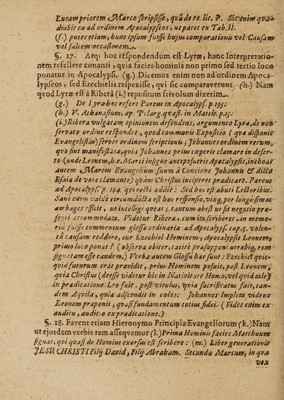 Lucam priorem Marco scripsisse, quâ de re lit. P. Sic enim quæ
debit ca ad ordinem Apocalypseos, ut patet ex Tab. II.
(f.) putes etiam, hunc ipsum fuisse hujus comparationis vel Causam
vel saltem occasionem.
§. 27. Atqj hoc respondendum est Lyræ, hanc Interpretatio-
nem refellere conanti, quia facies hominis non primo sed tertio loco
ponatur in Apocalypsi. (g.) Dicemus enim non ad ordinem Apoca-
lypseos, sed Ezechielis respexisse, qui sic comparaverunt. (h.) Nam
quod Lyræ est à Ribera (i.) repositum frivolum dixerim.
(g.) De Lyra hoc refert Pareus in Apocalyp. p. 195:
(h.) V. Athanasium, ap. Pelarg. quæst. in Matth. p. 15:
(i.) Ribera vulgatam opinionem defendens, argumento Lyræ, de non
servato ordine respondet, quod communis Expositio (quæ disponit
Evangelistas) servet ordinem scriptionis, Johannes ordinem rerum,
quo sint manifestatæ, quia Johannes primo cœperit clamare in deser-
to (unde Leonem, h. e. Marci insigne anteposuerit Apocalypsis, inchoat
autem Marcus Evangelium suum à Concione Johannis & dicto
Esaiæ de voce clamante) quàm Christus inciperet prædicare. Pareus
ad Apocalyps. p. 194. qui rectè addit: Sed hoc est abuti Lectoribus.
Sanè enim valdè circumducta est hæc responsio, vixqj per longissimas
ambages efficit, ut intelligi queat; tantum abest ut sit negotio præ-
senti accommodata. Videtur Ribera, cum ista scriberet, in memo-
riâ fuisse commentum glossæ ordinariæ ad Apocalyps. cap. 4. volen-
tis causam reddere, cur Ezechiel Hominem, Apocalypsis Leonem,
primo loco ponat? (observa obiter, tacitè præsupponi utrobiqj rem
signatam esse eandem.) Verba autem Glossæ hæc sunt: Ezechiel quic-
quid futurum erat prævidit, prius Hominem posuit, post Leonem,
quia Christus (deesse videtur hic in Nativitate Homo, vel quid simile)
in prædicatione Leo fuit, post vitulus, quia sacrificatus fuit, tan-
dem Aquila, quia adscendit in cœlos: Johannes impleta videns
Leonem præponit, quasi fundamentum totius fidei. (Fides enim ex
auditu, auditio ex prædicatione.)
§. 28. Favent etiam Hieronymo Principia Evangeliorum (k.) Nam
ut ejusdem verbis rem assequamur (l.) Prima Hominis facies Matthæum
signat, qui quasi de Homine exorsus est scribere: (m.) Liber generationis
JESU CHRISTI Filij David, Filij Abraham. Secunda Marcum, in qua
vox